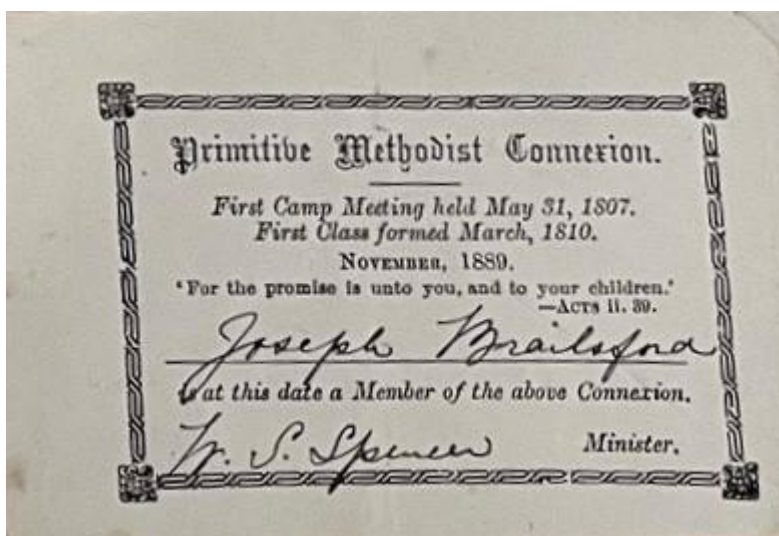 Primitive Methodist Connexion.
First Camp Meeting held May 31, 1807.
First Class formed March, 1810.
NOVEMBER, 1889.
'For the promise is unto you, and to your children.'
—ACTS ii. 39.
Joseph Brailsford
is at this date a Member of the above Connexion.
W. S. Spencer Minister.